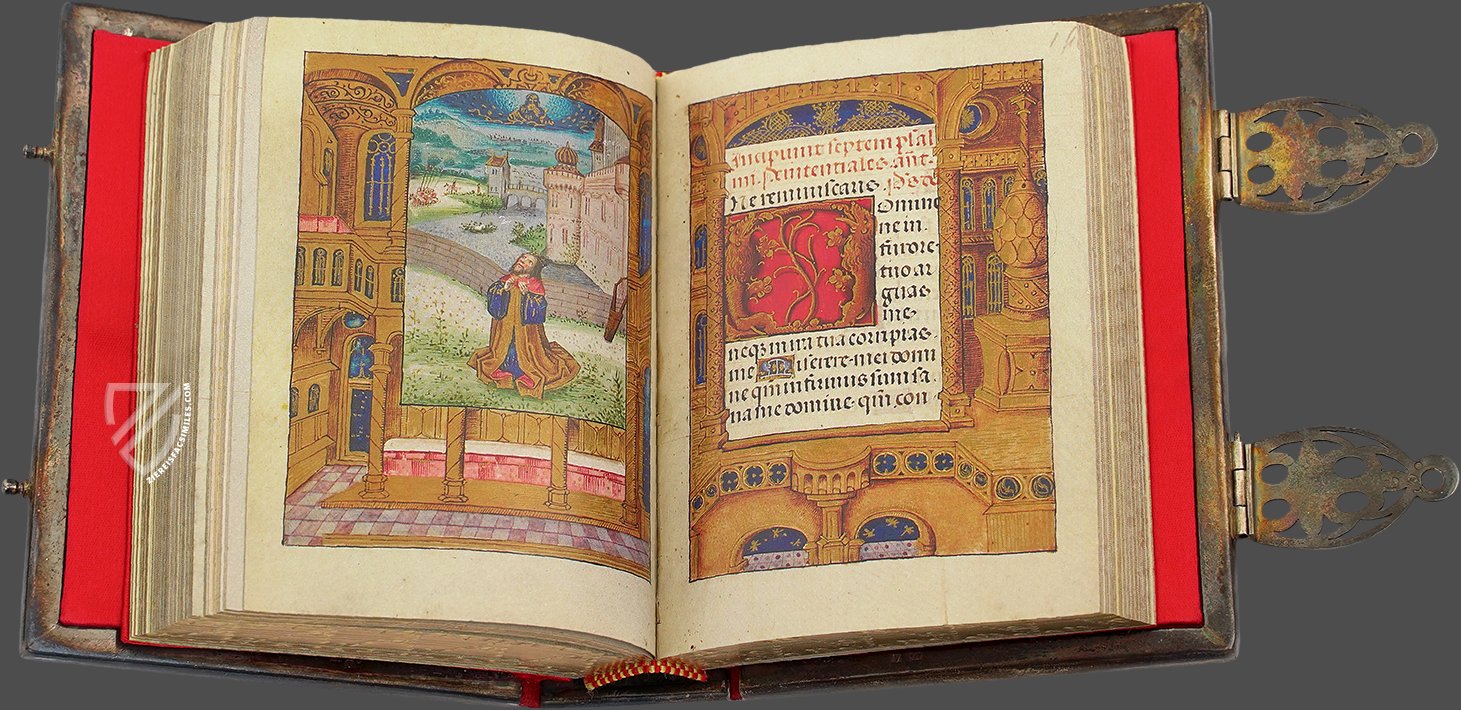 Incipiunt septem psal
mi. Penitentiales. ant
Ne reminiscaris. Ps̃
Domine
ne in
furore
tuo ar
guas
me
neq3 in ira tua corripias
me Miserere mei domi
ne qm̃ infirmus sum sa
na me domine qm̃ con
ZIEREISFACSIMILES.COM